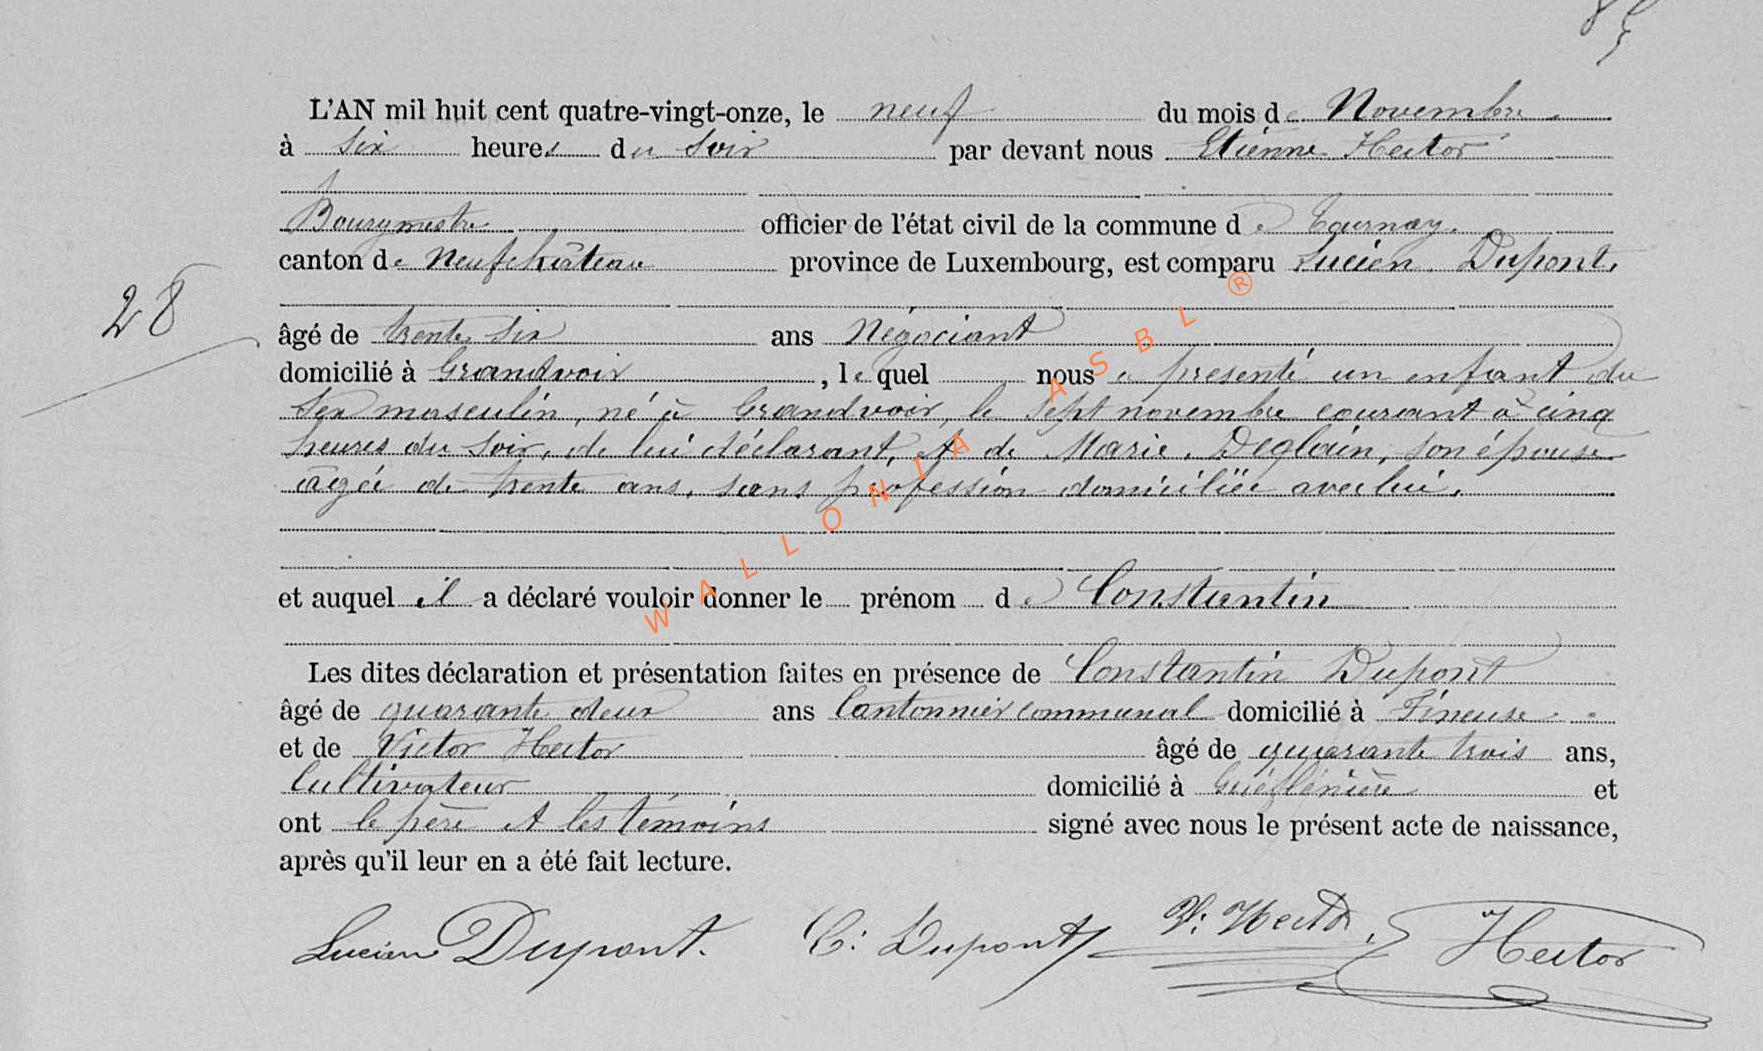 85
L'AN mil huit cent quatre-vingt-onze, le neuf du mois de Novembre
à six heures du soir par devant nous Etienne Hector
Bourgmestre officier de l'état civil de la commune de Tournay.
canton de Neufchâteau province de Luxembourg, est comparu Lucien Dupont,
28
âgé de trente six ans Négociant
domicilié à Grandvoir, lequel nous a présenté un enfant du
sexe masculin, né à Grandvoir, le sept novembre courant à cinq
heures du soir, de lui déclarant, et de Marie Deglain, son épouse
âgée de trente ans, sans profession domiciliée avec lui.
et auquel il a déclaré vouloir donner le prénom de Constantin
Les dites déclaration et présentation faites en présence de Constantin Dupont
âgé de quarante deux ans Cantonnier communal domicilié à Fineuse
et de Victor Hector âgé de quarante trois ans,
Cultivateur domicilié à et
ont le père et les témoins signé avec nous le présent acte de naissance,
après qu'il leur en a été fait lecture.
Lucien Dupont. C: Dupont V: Hector Hector
WALLONIA ASBL ®